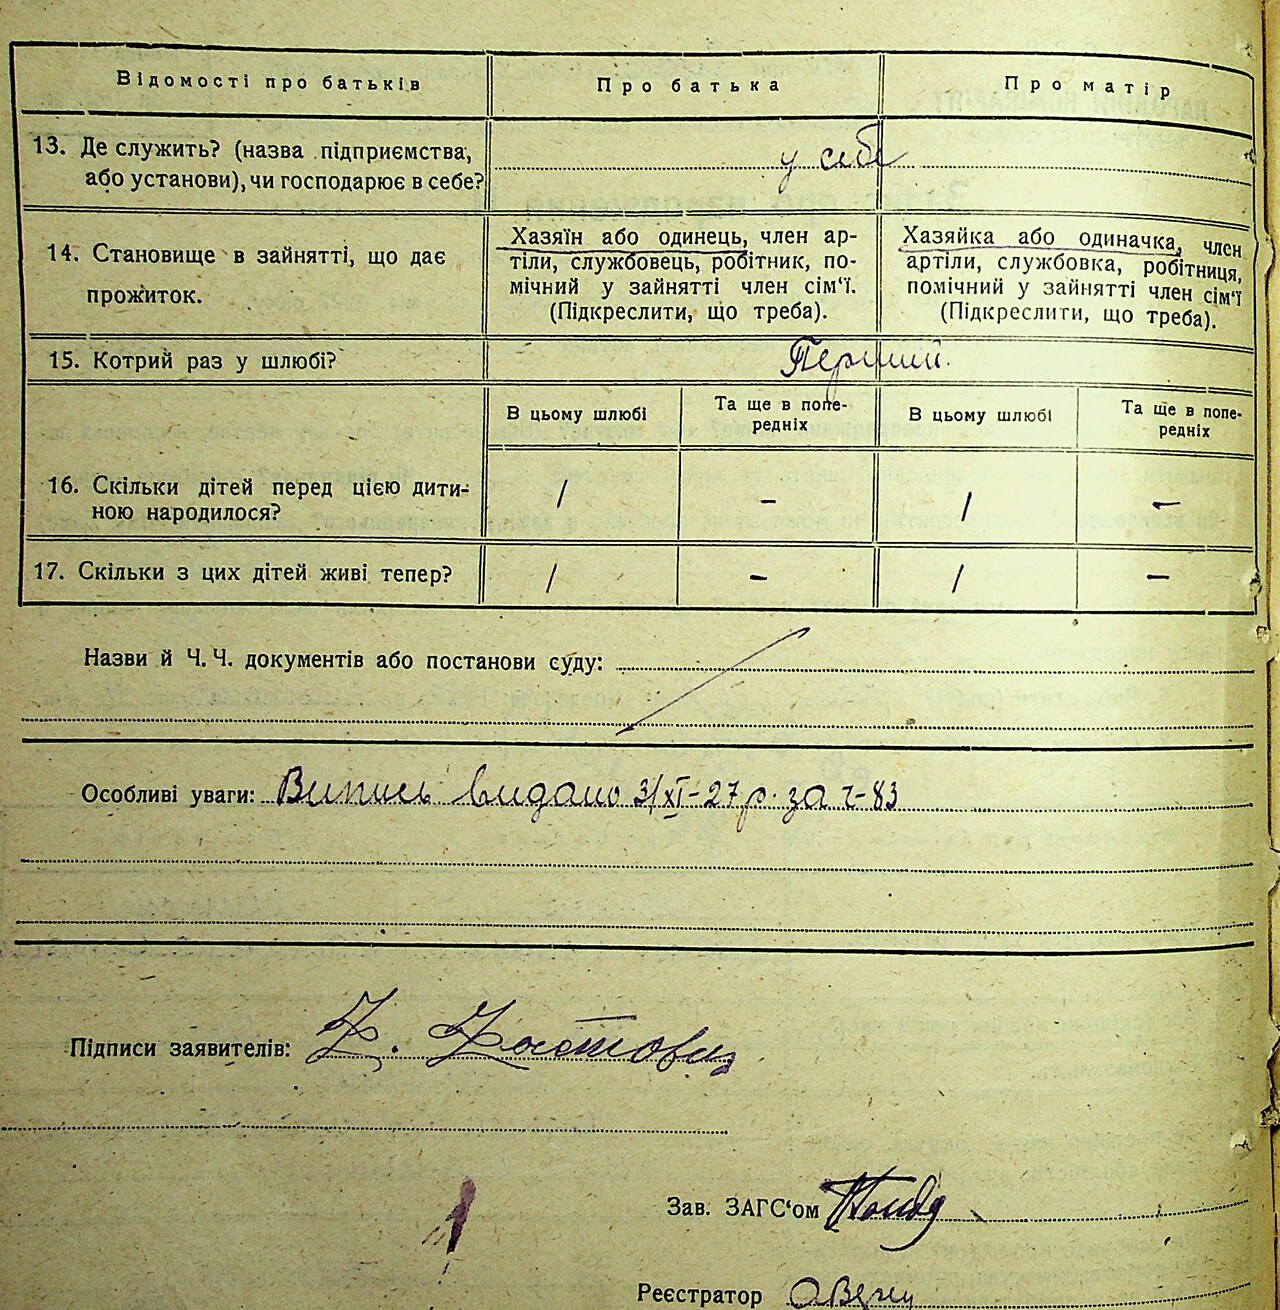 Відомості про батьків Про батька Про матір
13. Де служить? (назва підприємства, у себе
або установи), чи господарює в себе?
14. Становище в зайнятті, що дає прожиток.
Хазяїн або одинець, член ар-
тіли, службовець, робітник, по-
мічний у зайнятті член сім'ї.
(Підкреслити, що треба).
Хазяйка або одиначка, член
артіли, службовка, робітниця,
помічний у зайнятті член сім'ї
(Підкреслити, що треба).
15. Котрий раз у шлюбі? Перший.
В цьому шлюбі Та ще в попе-редніх В цьому шлюбі Та ще в попе-редніх
16. Скільки дітей перед цією дити-
ною народилося? / – / –
17. Скільки з цих дітей живі тепер? / – / –
Назви й Ч. Ч. документів або постанови суду:
Особливі уваги: Випись видано 3/XI-27 р. за ч-83
Підписи заявителів:
Зав. ЗАГС'ом
Реєстратор